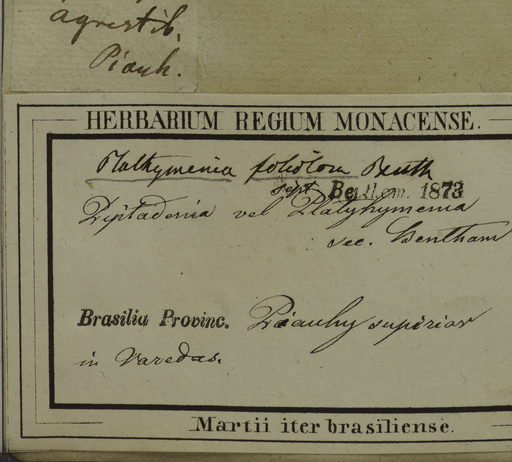 agrestib.
Piauh.
HERBARIUM REGIUM MONACENSE.
Plathymenia foliolosa Benth
Sept 1873
Piptadenia vel Platyhymenia
sec. Bentham
Brasilia Provinc. Piauhy superior
in Varedas.
Martii iter brasiliense.